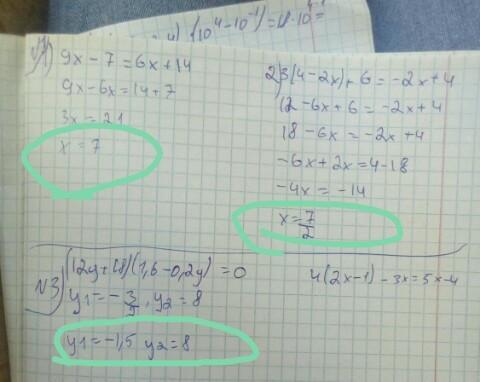 (10⁴-10⁻¹)=
№1) 9x-7=6x+14
9x-6x=14+7
3x=21
x=7
2) 3(4-2x)+6=-2x+4
12-6x+6=-2x+4
18-6x=-2x+4
-6x+2x=4-18
-4x=-14
x=7/2
№3) (12y+18)(1,6-0,2y)=0
y1=-3/2, y2=8
y1=-1,5 y2=8
4(2x-1)-3x=5x-4